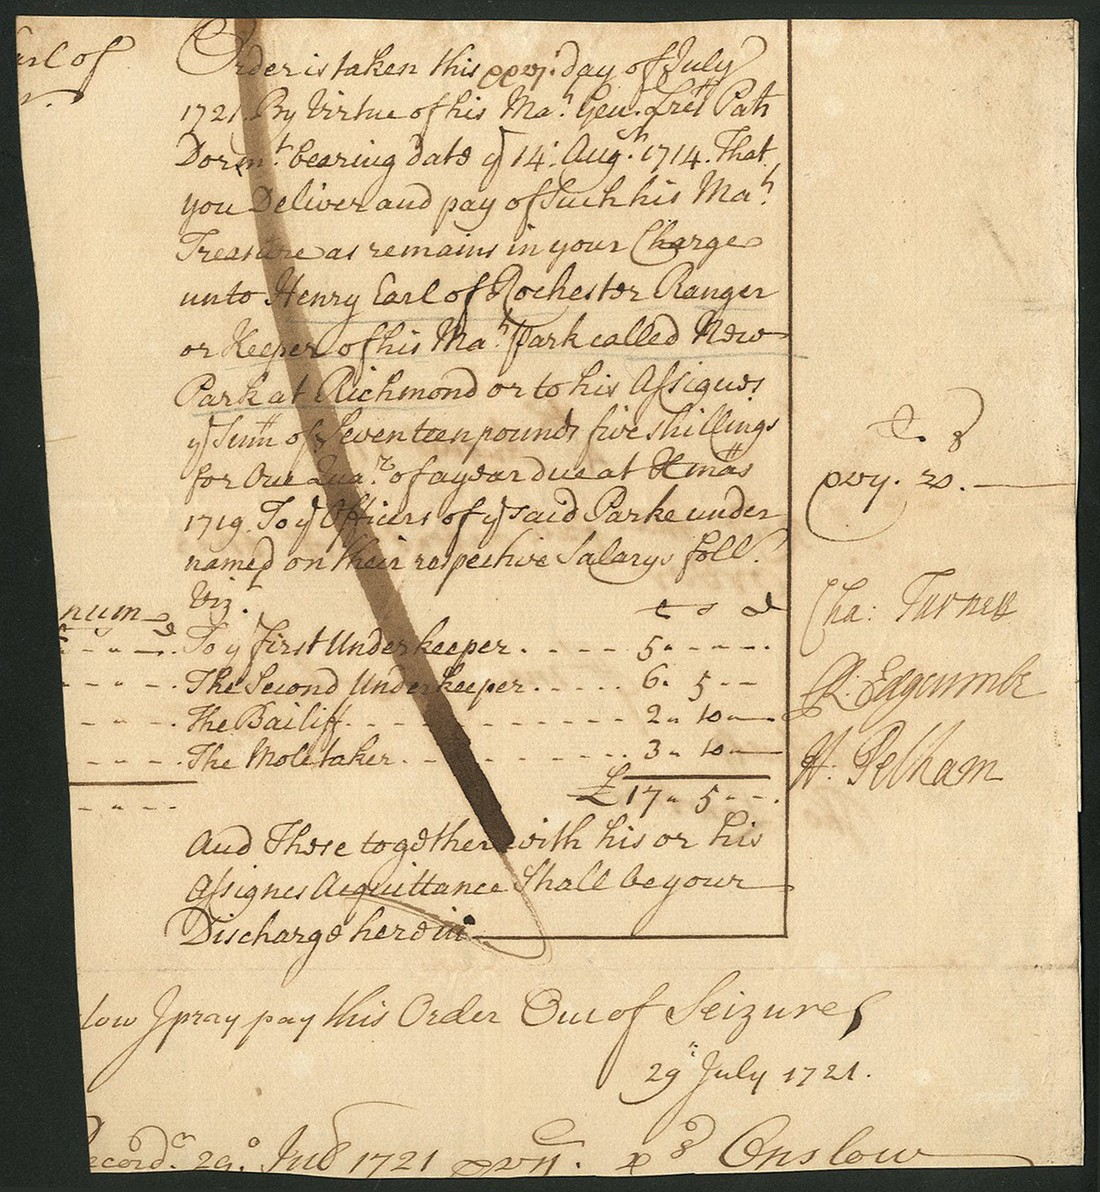 arl of
Order is taken this xxvj.th day of July
1721. By Virtue of his Ma.ts Gen. Lres Pats
Dorm.t bearing date ye 14.th Aug.st 1714. That
you Deliver and pay of Such his Ma.ts
Treasure as remains in your Charge
unto Henry Earl of Rochester Ranger
or Keeper of his Ma.ts Park called New
Park at Richmond or to his Assignes
ye Sum of Seventeen pounds five shillings
for One Qua.r of a year due at Xmas
1719. To ye Officers of ye said Parke under
named on their respective Salarys foll.
Viz.t £ s d
num
To ye first Underkeeper. - - - - 5 " - - -.
The Second Underkeeper. - - - - 6. 5 - -
The Bailiff. - - - - - - - - 2 " 10 " —
The Moletaker. - - - - - - - 3 " 10 " —
£17 " 5 - -.
And These together with his or his
Assignes Acquittance Shall be your
Discharge herein
xvij. v.
Cha: Turner
R: Edgcumbe
H. Pelham
low I pray pay this Order Out of Seizures
29th July 1721.
Record. 29.o Julij 1721 Onslow